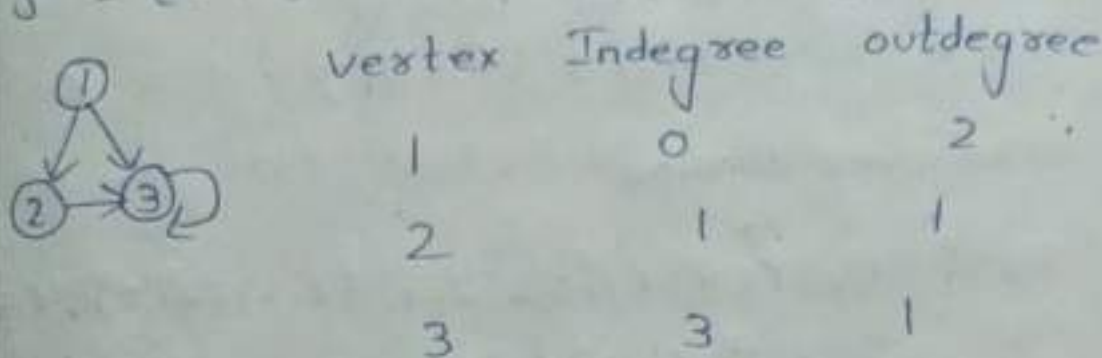 vertex Indegree outdegree
1
1 0 2
2 3
2 1 1
3 3 1